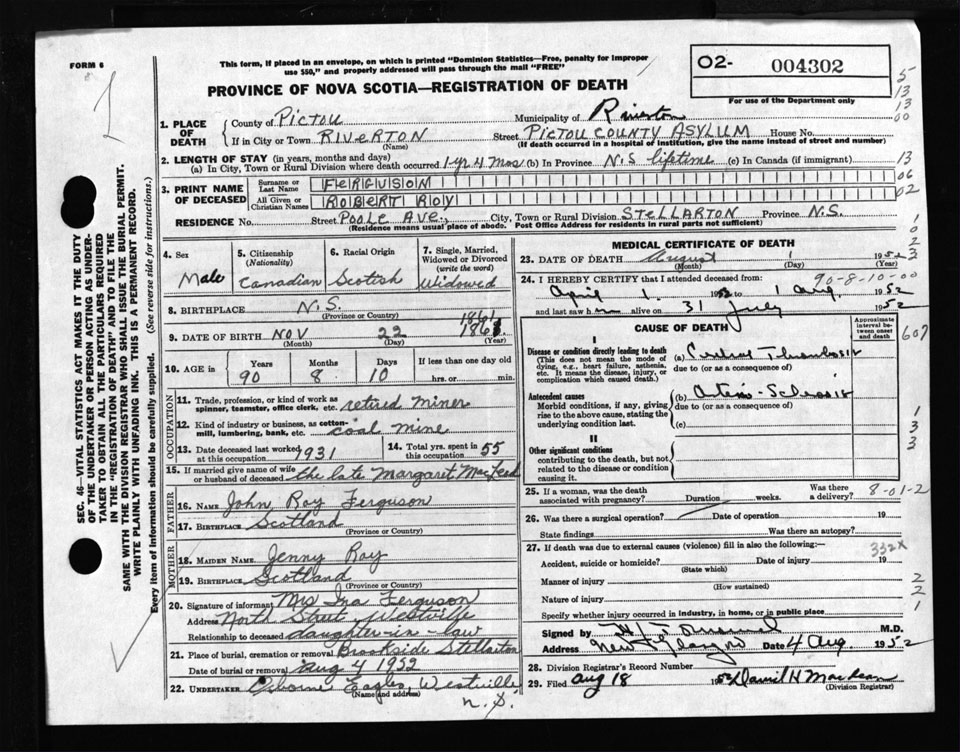 FORM 6
This form, if placed in an envelope, on which is printed "Dominion Statistics—Free, penalty for improper
use $50," and properly addressed will pass through the mail "FREE"
O2- 004302
For use of the Department only
PROVINCE OF NOVA SCOTIA—REGISTRATION OF DEATH
5
13
13
00
1. PLACE OF DEATH
County of PICTOU Municipality of Riverton
If in City or Town RIVERTON (Name) Street PICTOU COUNTY ASYLUM House No.
(If death occurred in a hospital or institution, give the name instead of street and number)
2. LENGTH OF STAY (in years, months and days)
(a) In City, Town or Rural Division where death occurred 1 yr 4 mos (b) In Province N.S lifetime (c) In Canada (if immigrant)
13
06
02
3. PRINT NAME OF DECEASED
Surname or Last Name FERGUSON
All Given or Christian Names ROBERT ROY
RESIDENCE No. Street Poole Ave., City, Town or Rural Division STELLARTON Province N.S.
(Residence means usual place of abode. Post Office Address for residents in rural parts not sufficient)
4. Sex Male
5. Citizenship (Nationality) Canadian
6. Racial Origin Scotish
7. Single, Married, Widowed or Divorced (write the word) Widowed
8. BIRTHPLACE N.S. (Province or Country)
1861
9. DATE OF BIRTH NOV (Month) 22 (Day) 1861 (Year)
10. AGE in Years 90 Months 8 Days 10 If less than one day old hrs. or min.
OCCUPATION
11. Trade, profession, or kind of work as spinner, teamster, office clerk, etc. retired miner
12. Kind of industry or business, as cotton-mill, lumbering, bank, etc. coal mine
13. Date deceased last worked at this occupation 1931
14. Total yrs. spent in this occupation 55
15. If married give name of wife or husband of deceased the late Margaret MacLeod
FATHER
16. NAME John Roy Ferguson
17. BIRTHPLACE Scotland (Province or Country)
MOTHER
18. MAIDEN NAME Jenny Roy
19. BIRTHPLACE Scotland (Province or Country)
20. Signature of informant Mrs Ina Ferguson
Address North Street Westville
Relationship to deceased daughter-in-law
21. Place of burial, cremation or removal Brookside Stellarton
Date of burial or removal Aug 4 1952
22. UNDERTAKER Osborne Eagles, Westville, N.S. (Name and address)
MEDICAL CERTIFICATE OF DEATH
23. DATE OF DEATH August (Month) 1 (Day) 1952 (Year)
90-8-10-00
24. I HEREBY CERTIFY that I attended deceased from:
April 1. 1952 to 1 Aug. 1952
and last saw him alive on 31 July 1952
CAUSE OF DEATH
Approximate interval between onset and death
607
I
Disease or condition directly leading to death
(This does not mean the mode of dying, e.g., heart failure, asthenia, etc. It means the disease, injury, or complication which caused death.)
(a) Cerebral Thrombosis
due to (or as a consequence of)
Antecedent causes
Morbid conditions, if any, giving rise to the above cause, stating the underlying condition last.
(b) Arterio-Sclerosis
due to (or as a consequence of)
(c)
II
Other significant conditions contributing to the death, but not related to the disease or condition causing it.
25. If a woman, was the death associated with pregnancy? Duration weeks. Was there a delivery?
8-01-2
26. Was there a surgical operation? Date of operation 19
State findings Was there an autopsy?
27. If death was due to external causes (violence) fill in also the following:—
332X
Accident, suicide or homicide? (State which) Date of injury 19
Manner of injury (How sustained)
Nature of injury
Specify whether injury occurred in industry, in home, or in public place
Signed by M.D.
Address New Glasgow Date 4 Aug. 1952
28. Division Registrar's Record Number
29. Filed Aug 18 1952 Daniel H MacLean (Division Registrar)
SEC. 46—VITAL STATISTICS ACT MAKES IT THE DUTY
OF THE UNDERTAKER OR PERSON ACTING AS UNDER-
TAKER TO OBTAIN ALL THE PARTICULARS REQUIRED
IN THE "REGISTRATION OF DEATH" AND TO FILE THE
SAME WITH THE DIVISION REGISTRAR WHO SHALL ISSUE THE BURIAL PERMIT.
WRITE PLAINLY WITH UNFADING INK. THIS IS A PERMANENT RECORD.
Every item of information should be carefully supplied. (See reverse side for instructions.)